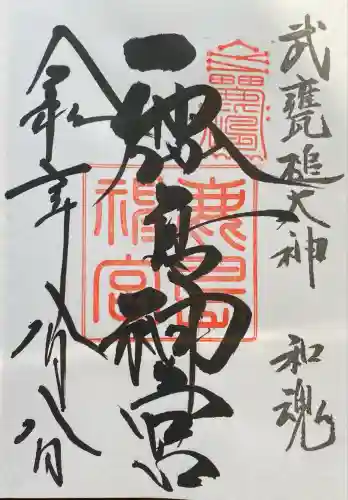 武甕槌大神　和魂
鹿島神宮
鹿島神宮
令和元年八月八日